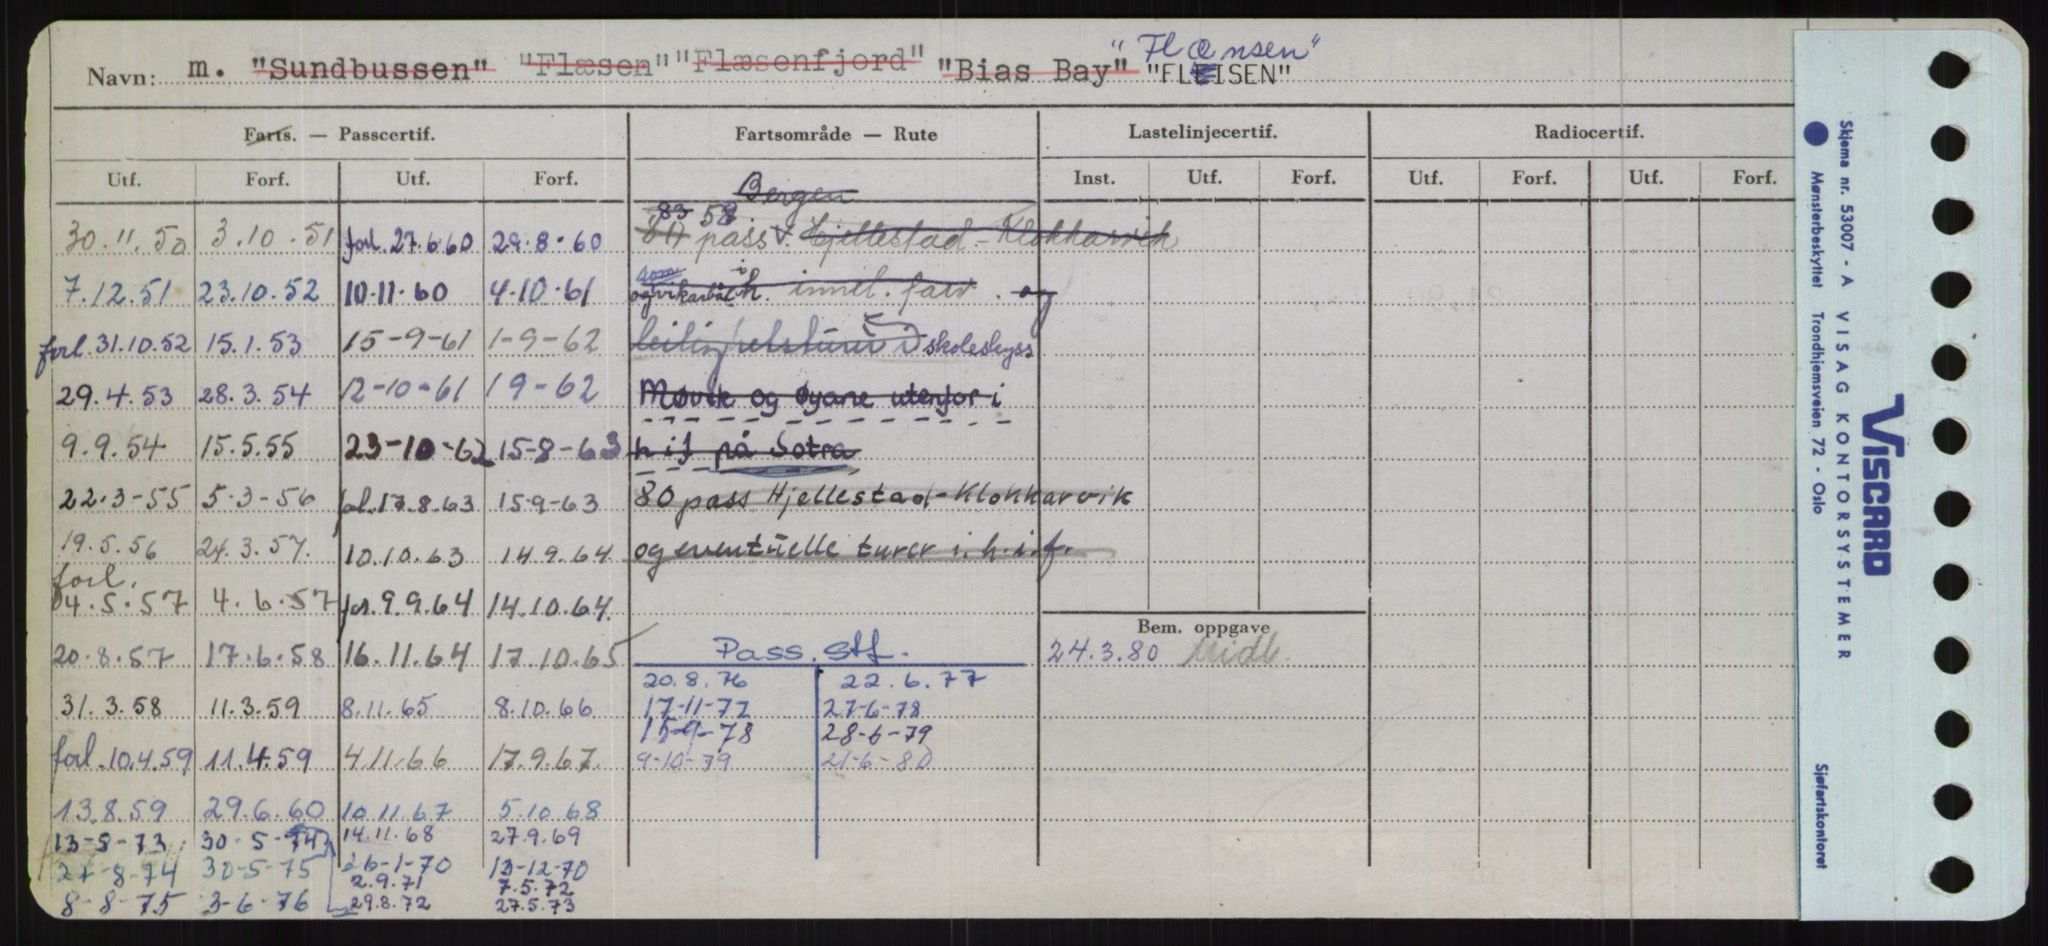 "Flænsen"
Navn: m. "Sundbussen" "Flæsen" "Flæsenfjord" "Bias Bay" "FLEISEN"
Farts. — Passcertif. Fartsområde — Rute Lastelinjecertif. Radiocertif.
Utf. Forf. Utf. Forf. Inst. Utf. Forf. Utf. Forf. Utf. Forf.
Bergen
83 58
30.11.50 3.10.51 forl. 27.6.60 29.8.60 pass v. Hjellestad - Klokkarvik
som i
7.12.51 23.10.52 10.11.60 4.10.61 og h. innel. farv. og
forl. 31.10.52 15.1.53 15-9-61 1-9-62 i skoleskyss
29.4.53 28.3.54 12-10-61 19-62 Møvik og øyane utenfor i
9.9.54 15.5.55 23-10-62 15-8-63 h i f på Sotra
22.3-55 5.3-56 fol. 13.8.63 15-9-63 80 pass Hjellestad-Klokkarvik
19.5.56 24.3.57. 10.10.63 14.9.64 og eventuelle turer i. h. i. f.
forl.
04.5.57 4.6.57 for. 9.9.64 14.10.64
Bem. oppgave
20.8.57 17.6.58 16.11.64 17.10.65 Pass. stf. 24.3.80 Midl.
20.8.76 22.6.77
31.3.58 11.3.59 8.11.65 8.10.66 17-11-77 27-6-78
15-9-78 28-6-79
forl. 10.4.59 11.4.59 4.11.66 17.9.67. 9-10-79 21-6-80
13.8.59 29.6.60 10.11.67 5.10.68
13-8-73 30-5-74 14.11.68 27.9.69
27-8-74 30-5-75 26-1-70 13-12-70
2.9.71 7.5.72
8-8-75 3-6-76 29.8.72 27.5.73
Skjema nr. 53007 - A VISAG KONTORSYSTEMER
Mønsterbeskyttet Trondhjemsveien 72 - Oslo
VISCARD
Sjøfartskontoret